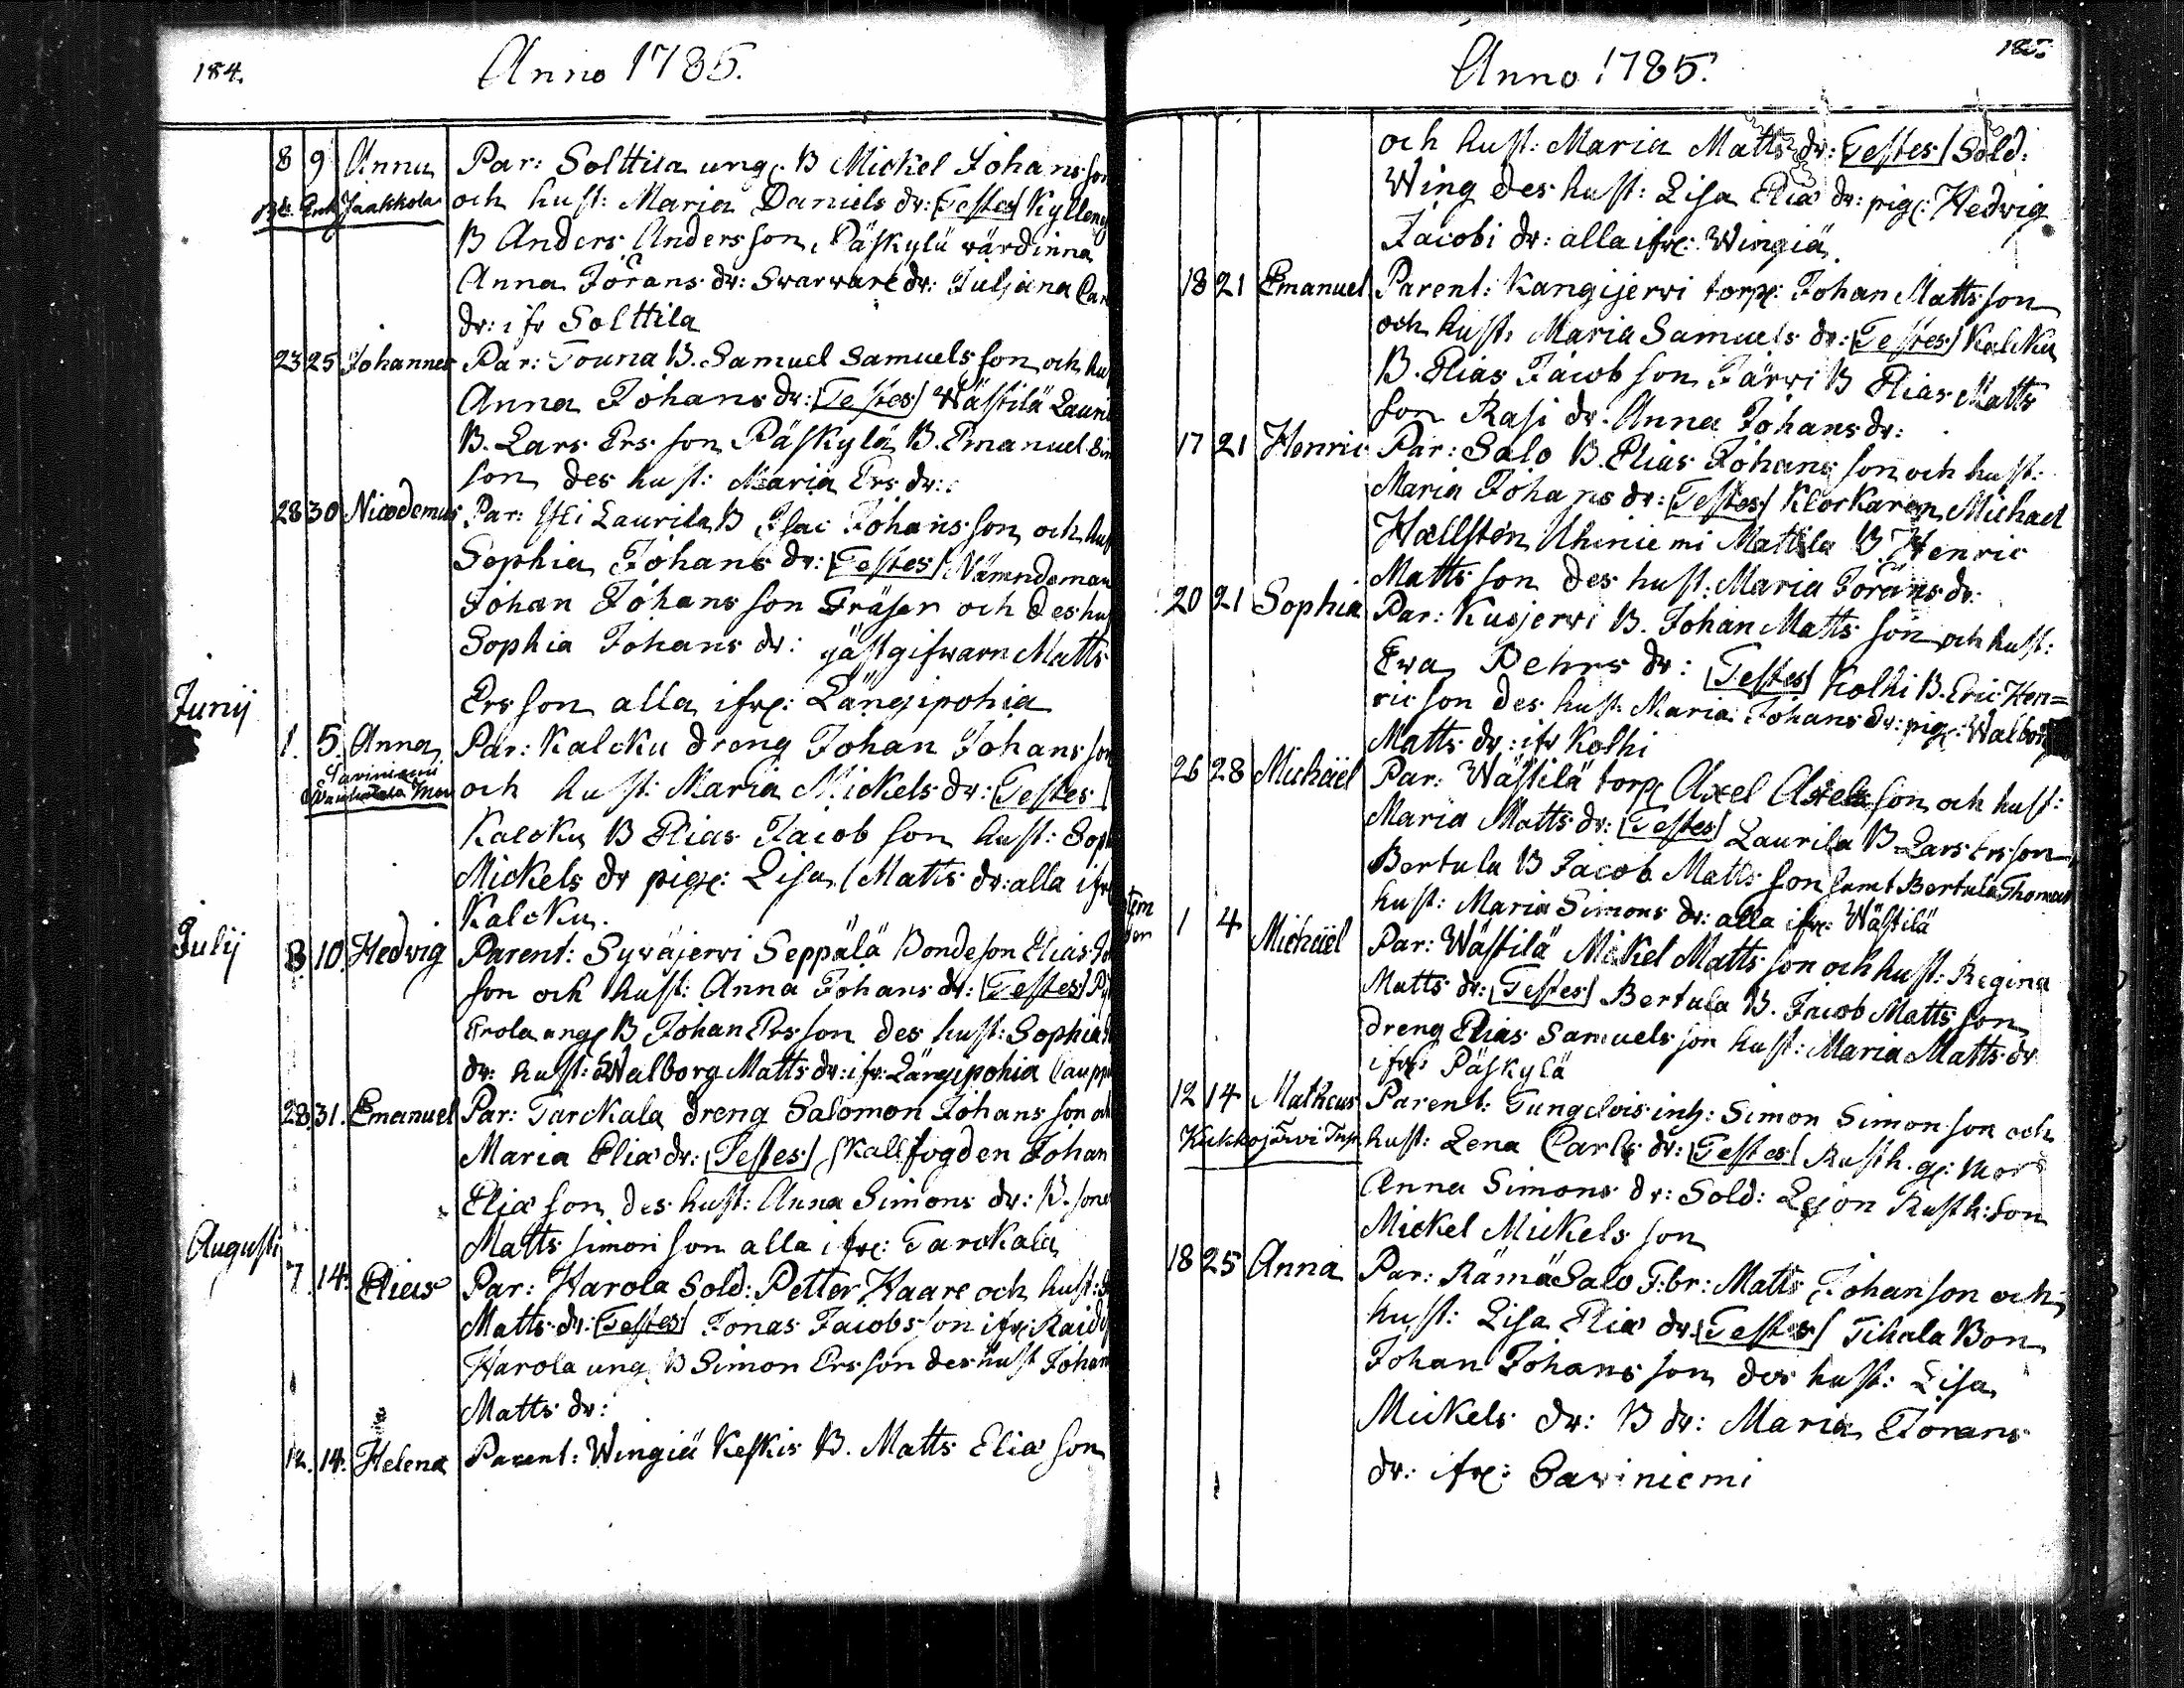 184.
Anno 1785.
8 9 Anna Par: Solttila ung: B Mickel Johans son
Jaakkola och hust: Maria Daniels dr: Testes
B Anders Anders son, Päskylä wärdinna
Anna Jörans dr: Swarware dr: Juljana
dr: ifr Solttila
23 25 Johannes Par: Touna B. Samuel Samuels son och
Anna Johans dr: Testes Wästilä
B. Lars Ers son Päskylä B. Emanuel
son des hust: Maria Ers dr:
28 30 Nicodemus Par: Yli Laurila B Isac Johans son och
Sophia Johans dr: Testes Nämndeman
Johan Johans son Fräser och des
Sophia Johans dr: gästgifwarn Matts
Ers son alla ifrå: Längipohia
Junij
1. 5. Anna Par: Kalcku dreng Johan Johans son
och hust: Maria Mickels dr: Testes
Kalcku B Elias Jacob son hust:
Mickels dr pigå: Lisa Matts dr: alla ifrå
Kalcku.
Julij
8 10. Hedvig Parent: Sywäjerwi Seppälä Bondeson Elias
son och hust: Anna Johans dr: Testes
Erola ungå B Johan Ers son des hust: Sophia
dr: hust: Walborg Matts dr: ifr: Längipohia
28 31. Emanuel Par: Tarckala dreng Salomon Johans son och
Maria Eliæ dr: Testes Skallfogden Johan
Eliæ son des hust: Anna Simons dr: B.
Matts Simon son alla ifrå: Tarckala
Augusti
7 14. Elias Par: Harola Sold: Petter Haare och hust:
Matts dr: Testes Jonas Jacobs son ifrå:
Harola ung B Simon Ers son des hust
Matts dr:
12. 14. Helena Parent: Wingiä Keskis B. Matts Eliæ son
185.
Anno 1785.
och hust: Maria Matts dr: Testes Sold:
Wing des hust: Lisa Eliæ dr: pigå: Hedvig
Jacobi dr: alla ifrå: Wingiä.
18 21 Emanuel Parent: Kangijerwi torpå: Johan Matts son
och hust: Maria Samuels dr: Testes Kalcku
B. Elias Jacob son Järwi B Elias Matts
son Rasi dr. Anna Johans dr:
17 21 Henric Par: Salo B. Elias Johans son och hust:
Maria Johans dr: Testes Klockaren Michael
Hællsten Uhiniemi Mattila B. Henric
Matts son des hust: Maria Jörans dr:
20 21 Sophia Par: Kusjerwi B. Johan Matts son och hust:
Ewa Pehrs dr: Testes Kolhi B. Eric Hen=
ric son des hust: Maria Johans dr: pigå: Walborg
Matts dr: ifr Kolhi
26 28 Michäel Par: Wästilä torpå Axel Axels son och hust:
Maria Matts dr: Testes Laurila B. Lars Ers son
Bertula B Jacob Matts son samt Bertula Thomas
hust: Maria Simons dr: alla ifrå: Wästilä
1 4 Michäel Par: Wästilä Mickel Matts son och hust: Regina
Matts dr: Testes Bertula B. Jacob Matts son
dreng Elias Samuels son hust: Maria Matts dr
ifrå: Päskylä
12 14 Matheus Parent: Tungelois inh: Simon Simon son och
Kukkojärvi hust: Lena Carls dr: Testes Rusth. gå: mor
Anna Simons dr: Sold: Lejon Rusth: son
Mickel Mickels son
18 25 Anna Par: Rämä Salo T: br: Matts Johan son och
hust: Lisa Eliæ dr: Testes Tihala Bon
Johan Johans son des hust: Lisa
Mickels dr: B dr: Maria Jörans
dr: ifrå: Sawiniemi